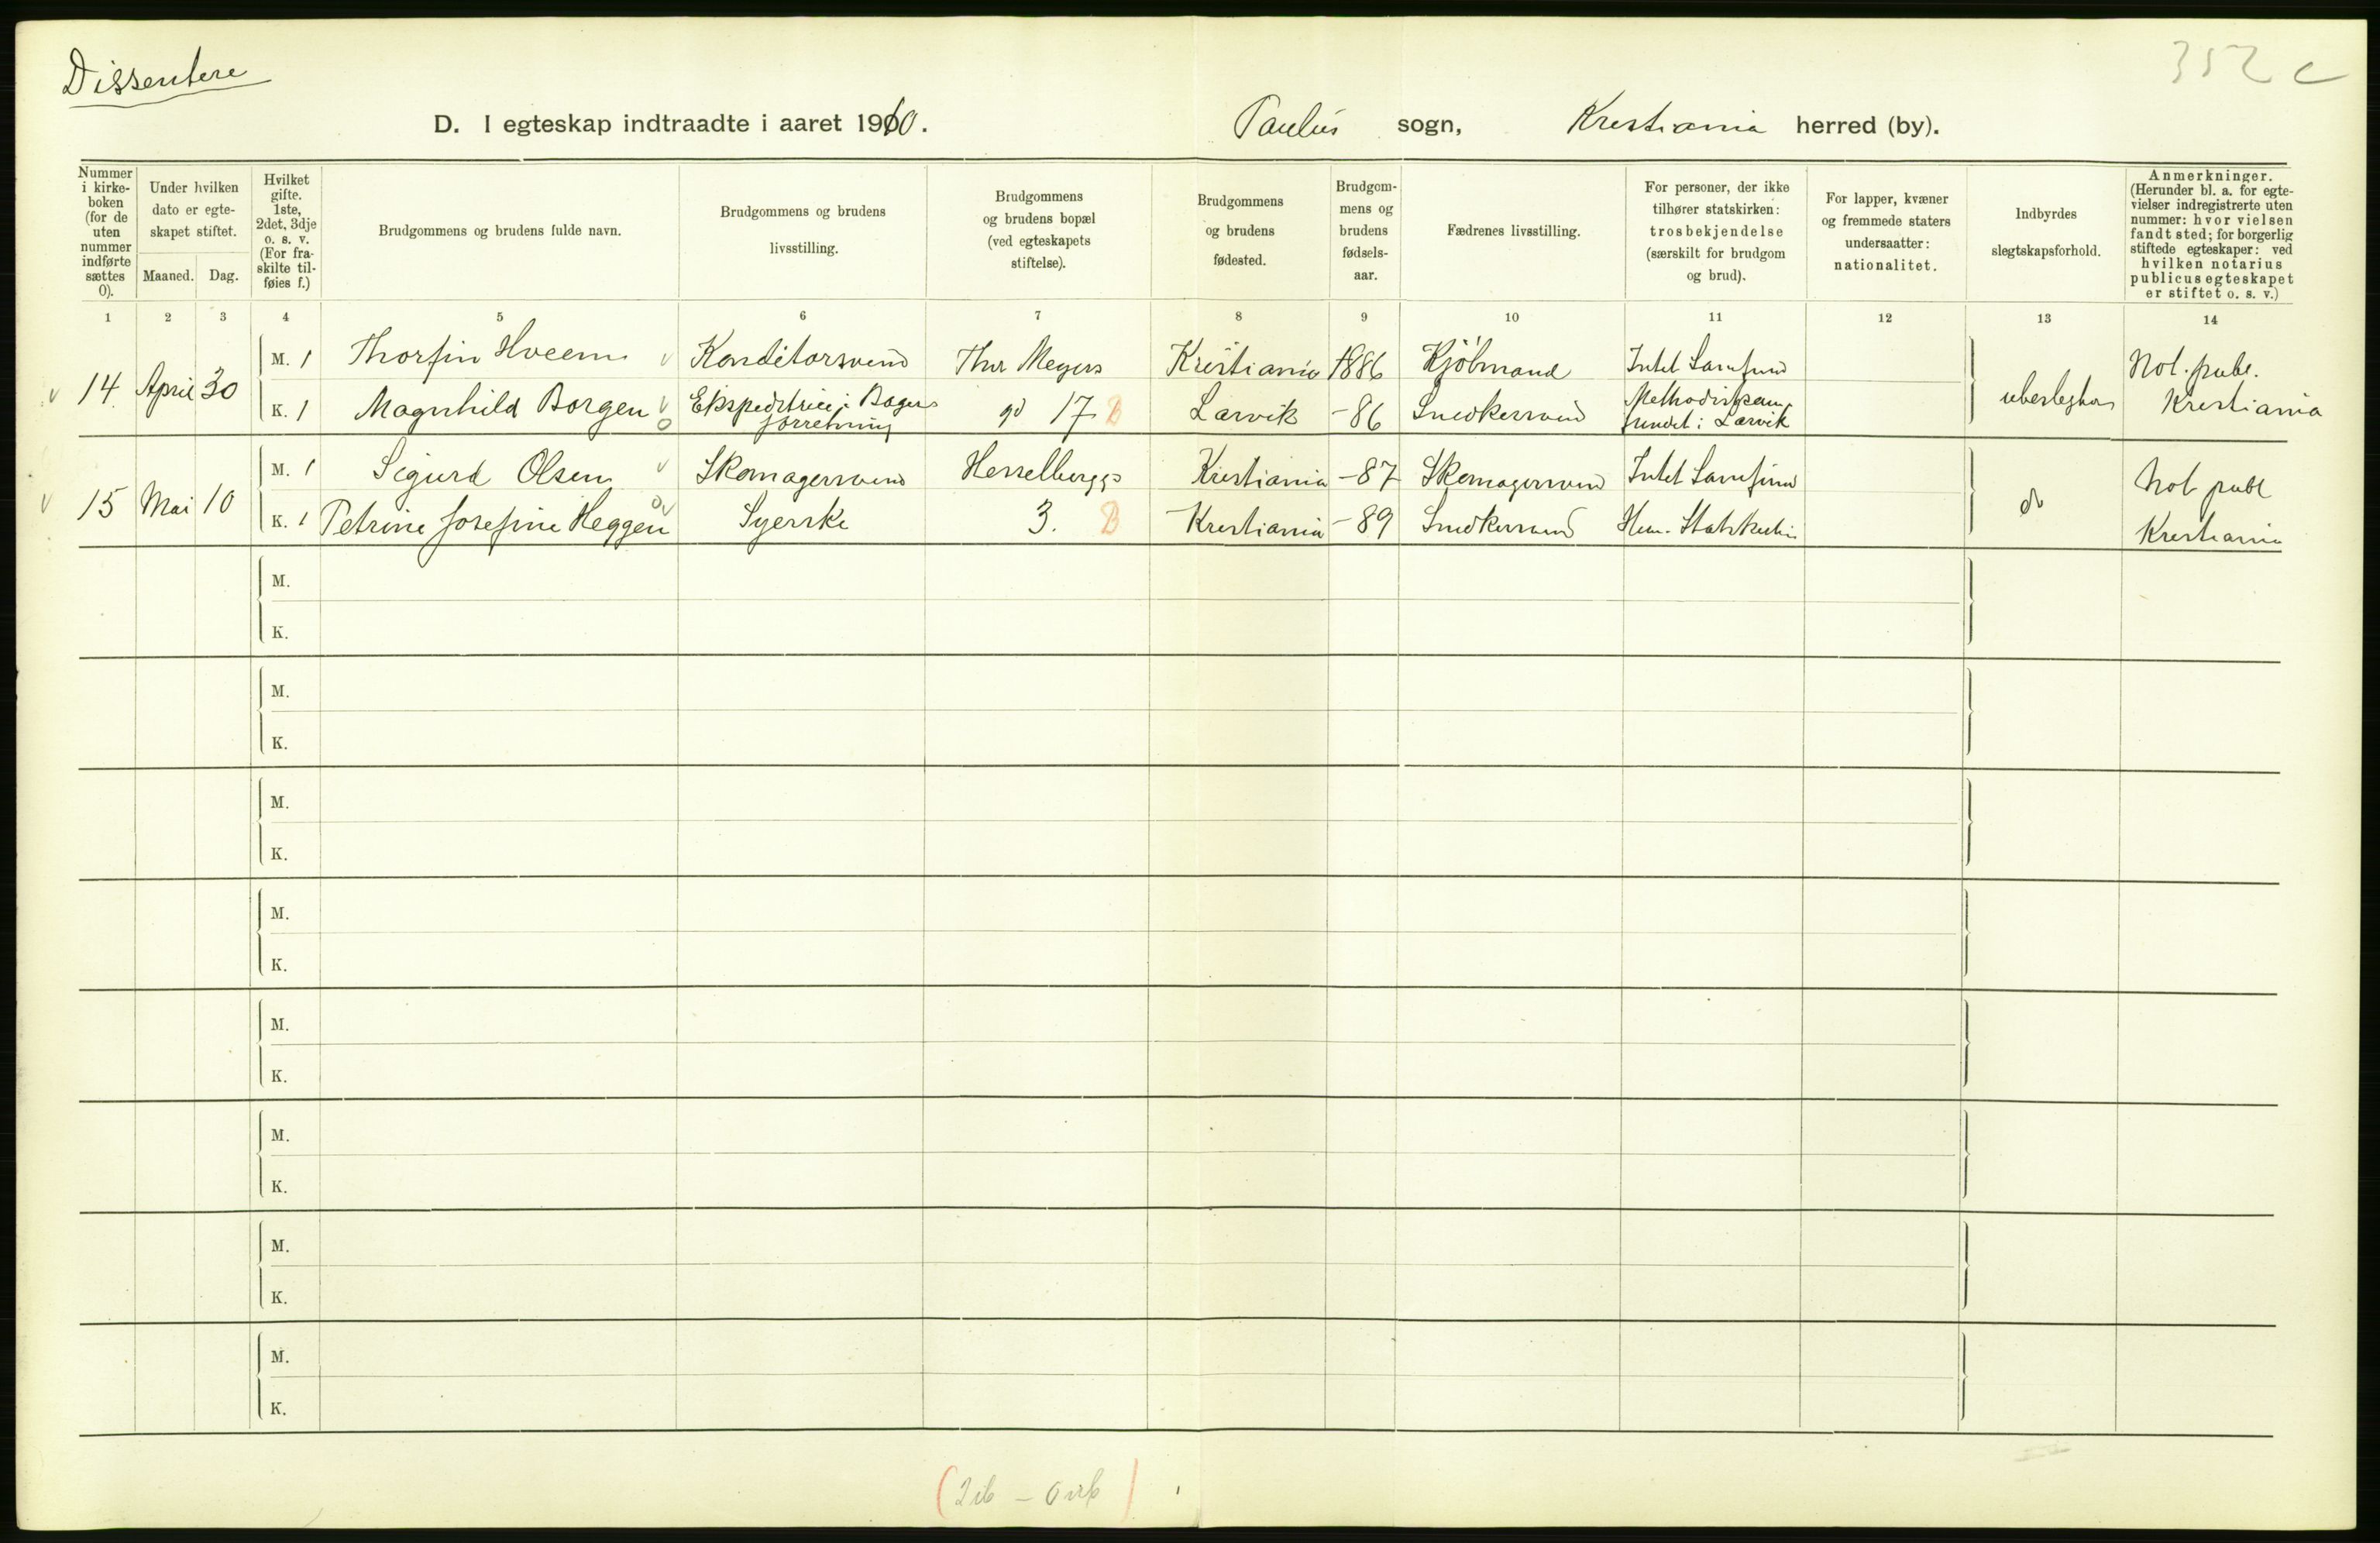 Dissentere
352 c
D. I egteskap indtraadte i aaret 1910. Paulus sogn, Kristiania herred (by).
Nummer i kirke-boken (for de uten nummer indførte sættes 0).
Under hvilken dato er egte-skapet stiftet.
Maaned. Dag.
Hvilket gifte. 1ste, 2det, 3dje o. s. v. (For fra-skilte til-føies f.)
Brudgommens og brudens fulde navn.
Brudgommens og brudens livsstilling.
Brudgommens og brudens bopæl (ved egteskapets stiftelse).
Brudgommens og brudens fødested.
Brudgom-mens og brudens fødsels-aar.
Fædrenes livsstilling.
For personer, der ikke tilhører statskirken: trosbekjendelse (særskilt for brudgom og brud).
For lapper, kvæner og fremmede staters undersaatter: nationalitet.
Indbyrdes slegtskapsforhold.
Anmerkninger. (Herunder bl. a. for egte-vielser indregistrerte uten nummer: hvor vielsen fandt sted; for borgerlig stiftede egteskaper: ved hvilken notarius publicus egteskapet er stiftet o. s. v.)
1 2 3 4 5 6 7 8 9 10 11 12 13 14
14 April 30
M. 1 Thorfin Hveem Konditorsvend Thv Meyers Kristiania 1886 Kjöbmand Intet Samfund
K. 1 Magnhild Borgen Ekspeditrice i Bager forretning gd 17 B Larvik -86 Snedkersvend Methodistsam-fundet i Larvik
ubeslegtet
Not. publ. Kristiania
15 Mai 10
M. 1 Sigurd Olsen Skomagersvend Hesselbergs Kristiania -87 Skomagersvend Intet Samfund
K. 1 Petrine Josefine Heggen Syerske 3. B Kristiania -89 Snedkersvend Hun. Statskirken
do
Not publ Kristiania
M.
K.
M.
K.
M.
K.
M.
K.
M.
K.
M.
K.
M.
K.
M.
K.
(2 ib - 0 uib)